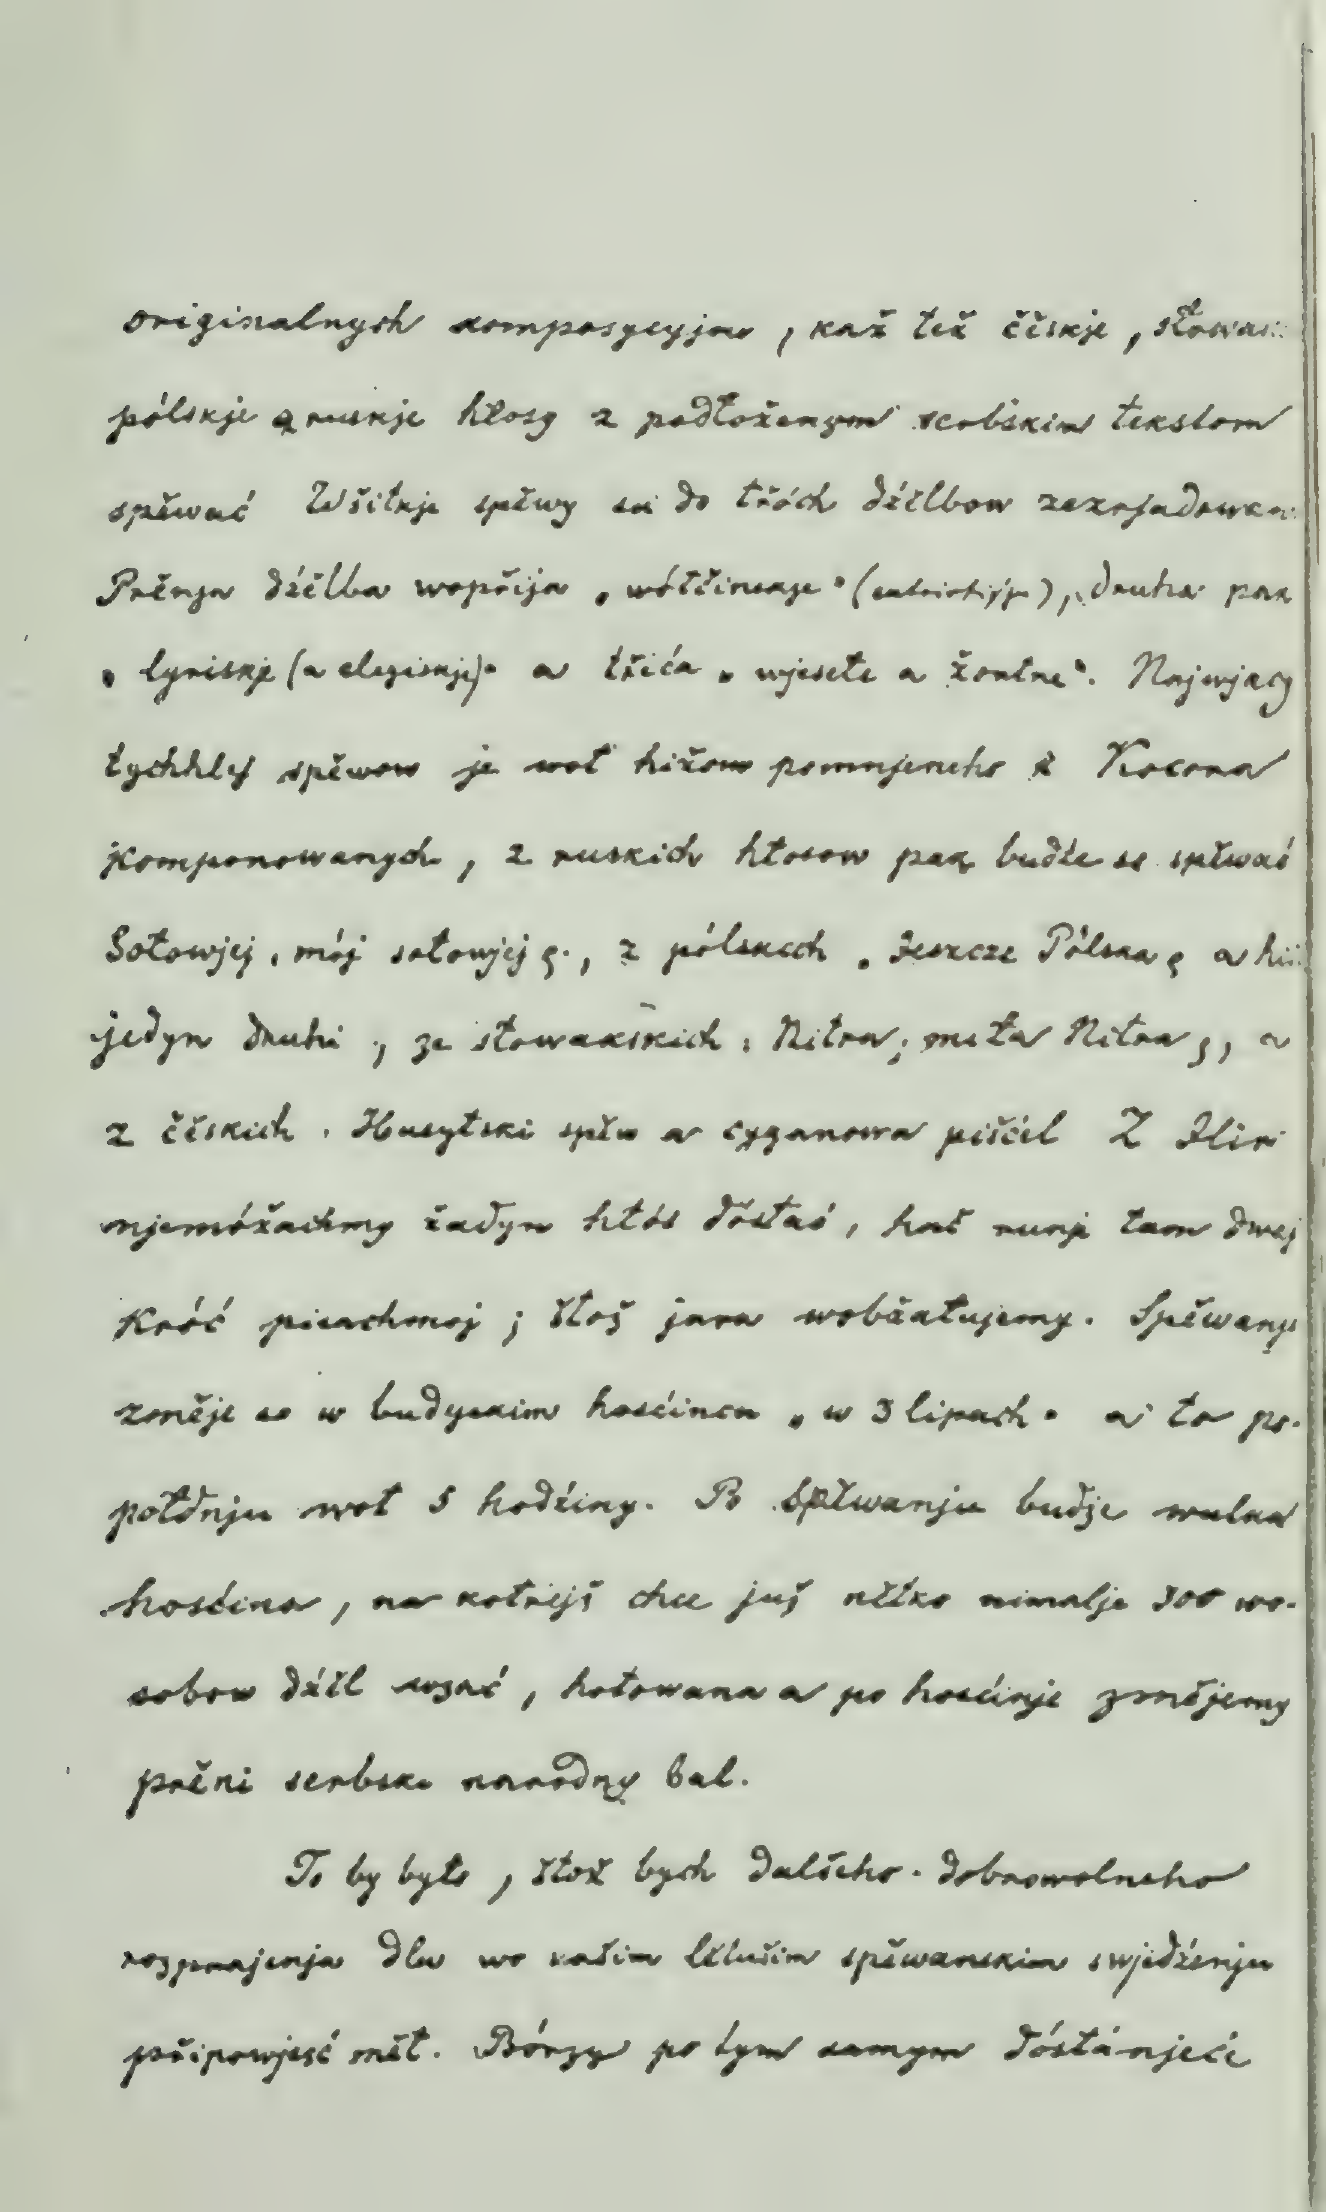 originalnych komposycyjow, kaž tež čěskje, słowak
pólskje a ruskje hłosy z podłoženym serbskim tekstom
spěwać Wšitkje spěwy su do třóch dźělbow zezrjadowan
Prěnja dźělba wopřija „wótčinskje" (patriotiske), druha pak
„lyriskje (a elegiskje)" a třića „wjesełe a žortne". Najwjacy
tychhlej spěwow je wot hižom pomnjeneho k Kocora
komponowanych, z ruskich hłosow pak budźe so spěwać
Sołowjej, mój sołowjej", z pólskich „Jeszcze Pólska" a hi
jedyn druhi, ze słowakskich „Nitra, miła Nitra", a
z čěskich „Husytski spěw a cyganowa pišćel Z Iliri
njemóžachmy žadyn hłós dóstać, hač runje tam dwej
króć pisachmoj; štož jara wobžałujemy. Spěwanje
změje so w budyskim hosćincu „w 3 lipach" a to po-
połdnju wot 5 hodźiny. Po spěwanju budźe wulka
hosćina, na kotrejž chce juž nětko nimalje 300 wo-
sobow dźěl wzać, hotowana a po hosćinje změjemy
prěni serbski narodny bal.
To by było, štož bych dalšeho dobrowolneho
rozprajenja dla wo našim lětušim spěwanskim swjedźenju
připowjesć měł. Bórzy po tym samym dóstanjeće